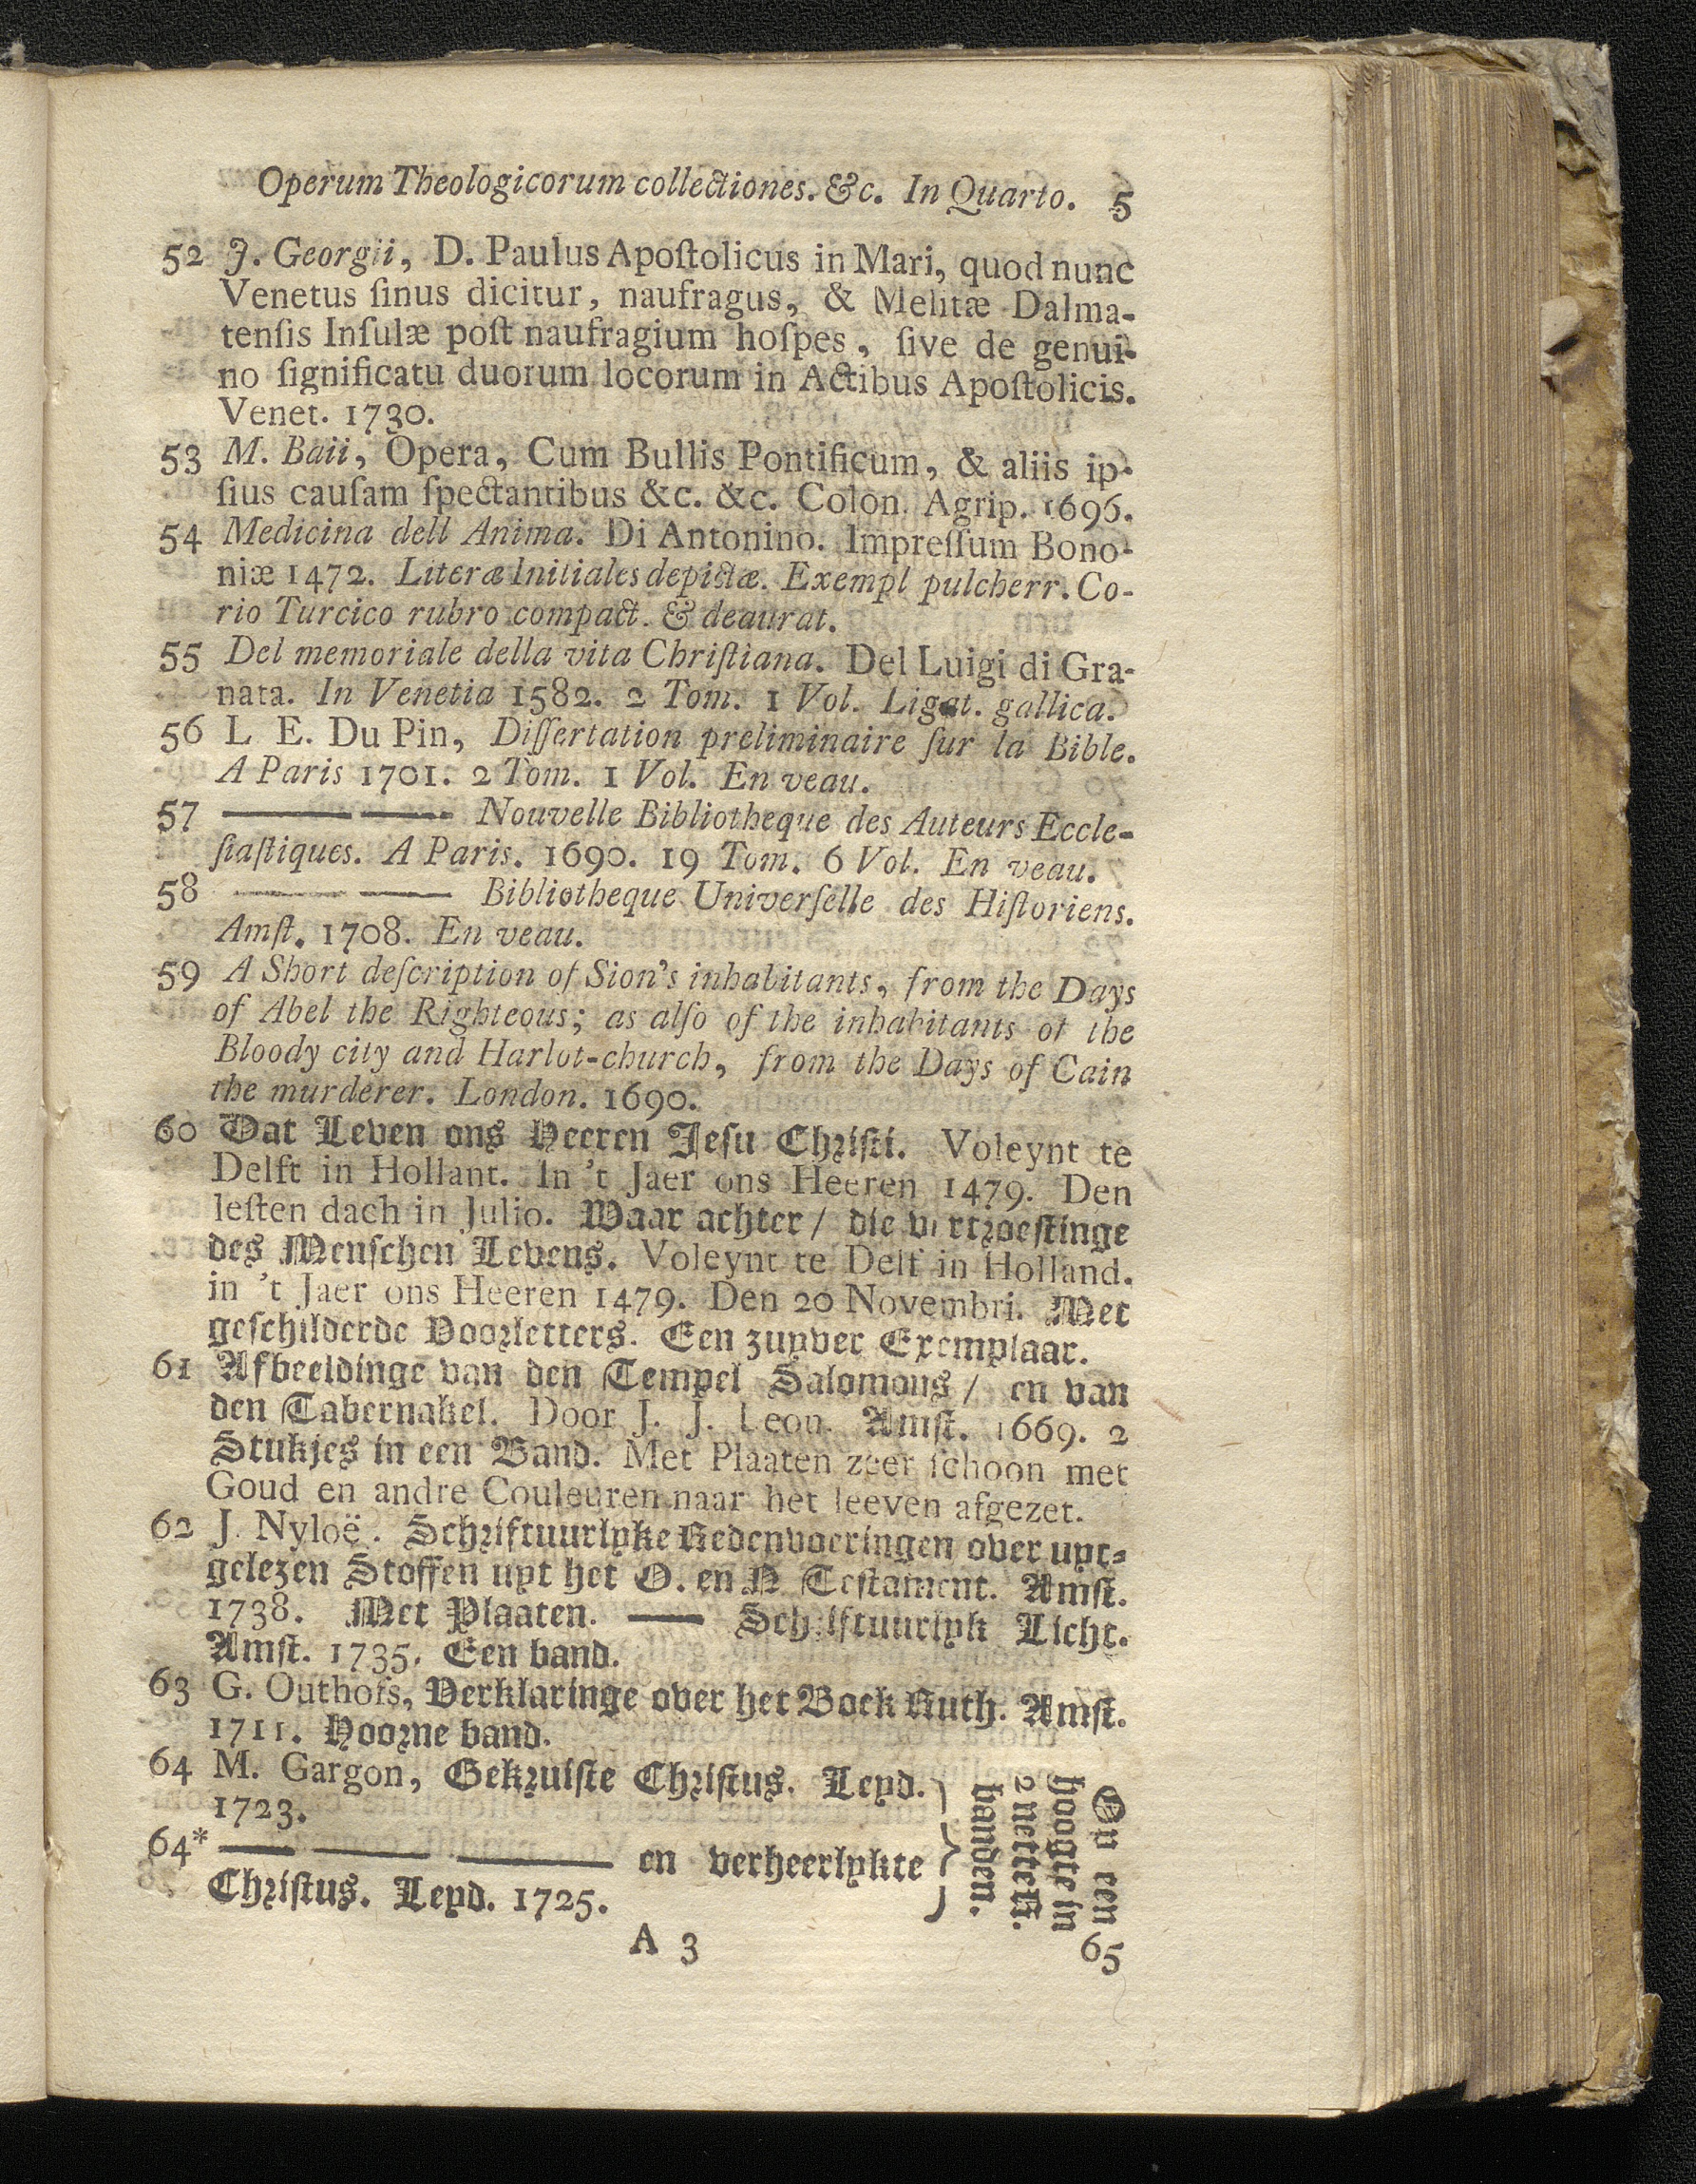 Operum Theologicorum collectiones. &c. In Quarto. 5
52 J. Georgii, D. Paulus Apoſtolicus in Mari, quod nunc
Venetus ſinus dicitur, naufragus, & Melitæ Dalma-
tenſis Inſulæ poſt naufragium hoſpes, ſive de genui-
no ſignificatu duorum locorum in Actibus Apoſtolicis.
Venet. 1730.
53 M. Baii, Opera, Cum Bullis Pontificum, & aliis ip-
ſius cauſam ſpectantibus &c. &c. Colon. Agrip. 1696.
54 Medicina dell Anima. Di Antonino. Impreſſum Bono-
niæ 1472. Literæ Initiales depictæ. Exempl pulcherr. Co-
rio Turcico rubro compact. & deaurat.
55 Del memoriale della vita Chriſtiana. Del Luigi di Gra-
nata. In Venetia 1582. 2 Tom. 1 Vol. Ligat. gallica.
56 L E. Du Pin, Diſſertation preliminaire ſur la Bible.
A Paris 1701. 2 Tom. 1 Vol. En veau.
57 —— —— Nouvelle Bibliotheque des Auteurs Eccle-
ſiaſtiques. A Paris. 1690. 19 Tom. 6 Vol. En veau.
58 —— —— Bibliotheque Univerſelle des Hiſtoriens.
Amſt. 1708. En veau.
59 A Short deſcription of Sion's inhabitants, from the Days
of Abel the Righteous; as alſo of the inhabitants of the
Bloody city and Harlot-church, from the Days of Cain
the murderer. London. 1690.
60 Dat Leven ons Heeren Jeſu Chriſti. Voleynt te
Delft in Hollant. In 't Jaer ons Heeren 1479. Den
leſten dach in Julio. Waar achter / die vertroeſtinge
des Menſchen Levens. Voleynt te Delf in Holland.
in 't Jaer ons Heeren 1479. Den 20 Novembri. Met
geſchilderde Voorletters. Een zupver Exemplaar.
61 Afbeeldinge van den Tempel Salomons / en van
den Tabernakel. Door J. J. Leon. Amſt. 1669. 2
Stukjes in een Band. Met Plaaten zeer ſchoon met
Goud en andre Couleuren naar het leeven afgezet.
62 J. Nyloë. Schriftuurlyke Redenvoeringen over uyt-
gelezen Stoffen uyt het O. en N Teſtament. Amſt.
1738. Met Plaaten. —— Schriftuurlyk Licht.
Amſt. 1735. Een band.
63 G. Outhofs, Verklaringe over het Boek Ruth. Amſt.
1711. Hoorne band.
64 M. Gargon, Gekruiſte Chriſtus. Leyd.
1723.
64* —— —— —— en verheerlykte
Chriſtus. Leyd. 1725.
Op een
hoogte in
2 nette H.
banden.
A 3
65